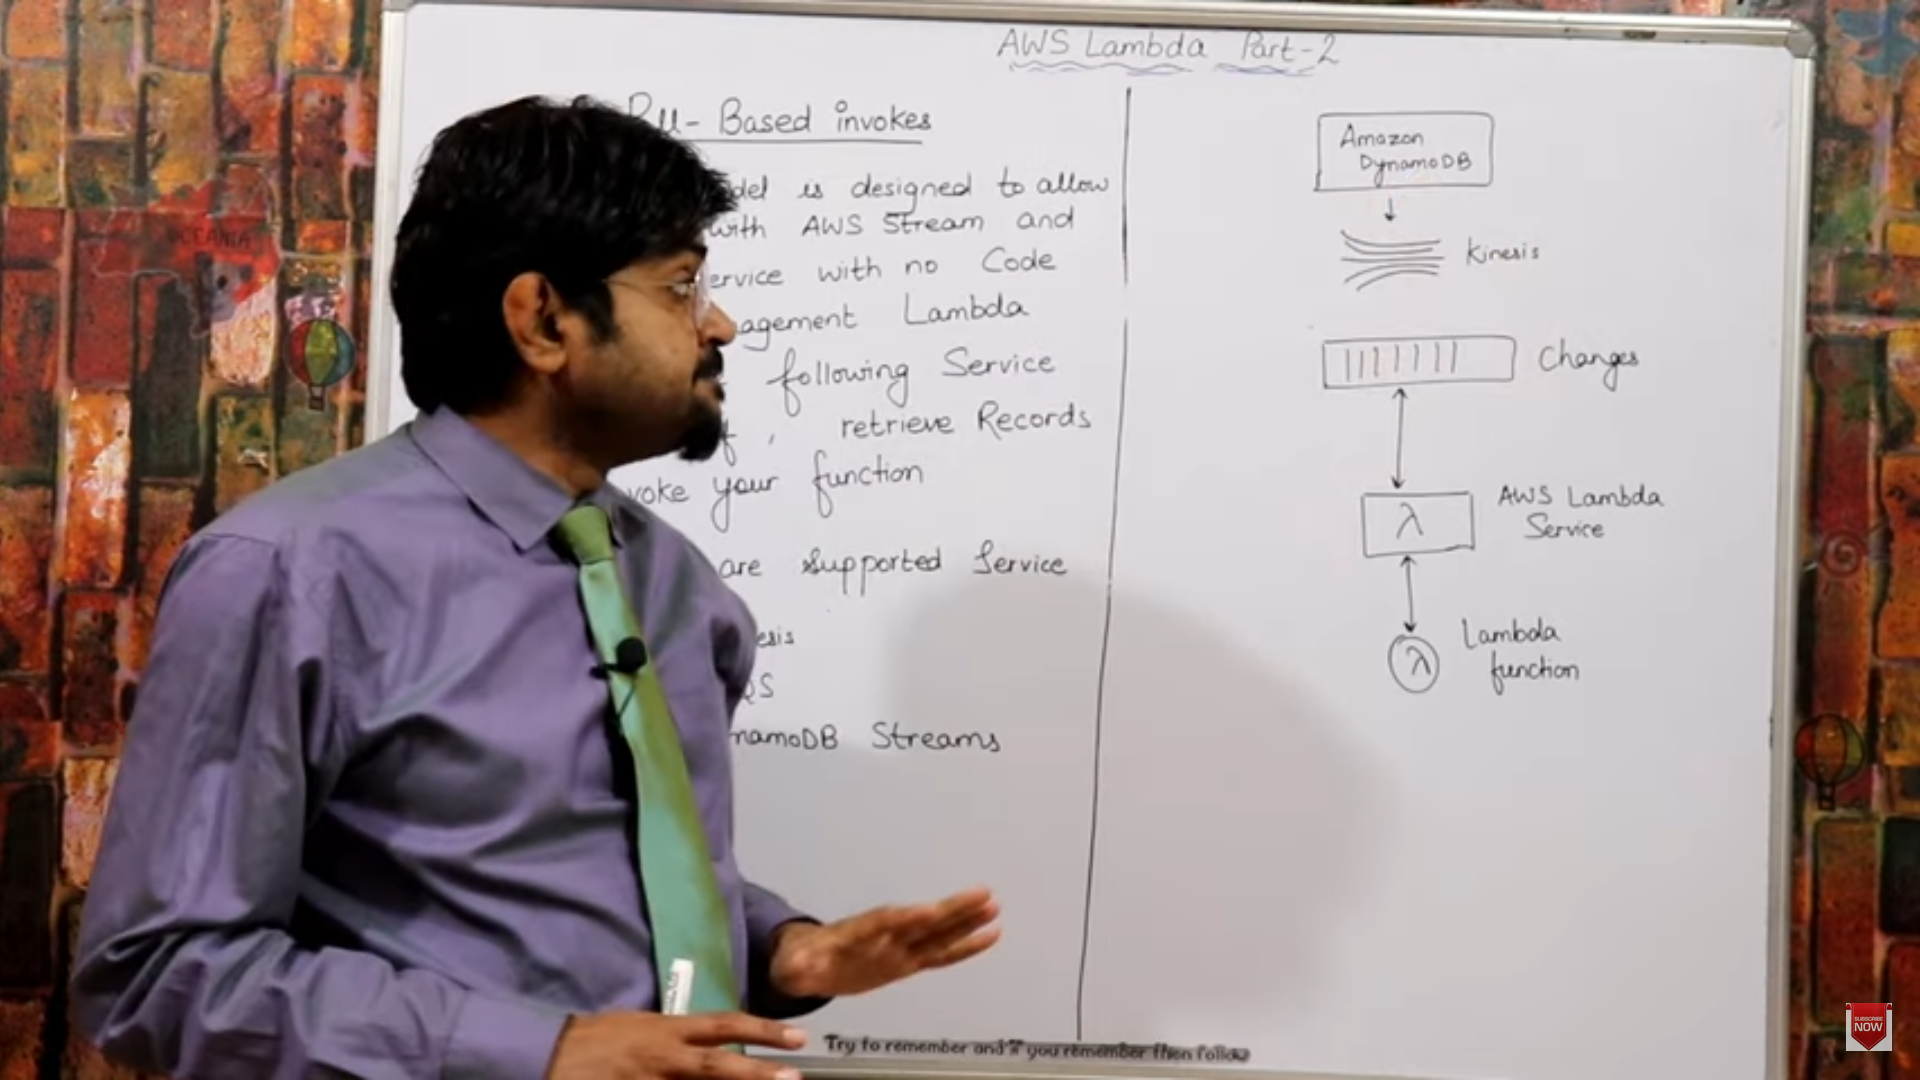 AWS Lambda Part-2
Based invokes
is designed to allow
with AWS Stream and
with no Code
Lambda
following Service
, retrieve Records
your function
are Supported Service
DynamoDB Streams
Amazon
DynamoDB
Kinesis
Changes
λ
AWS Lambda
Service
λ
Lambda
function
OCEANIA
Try to remember and if you remember then follow
SUBSCRIBE
NOW